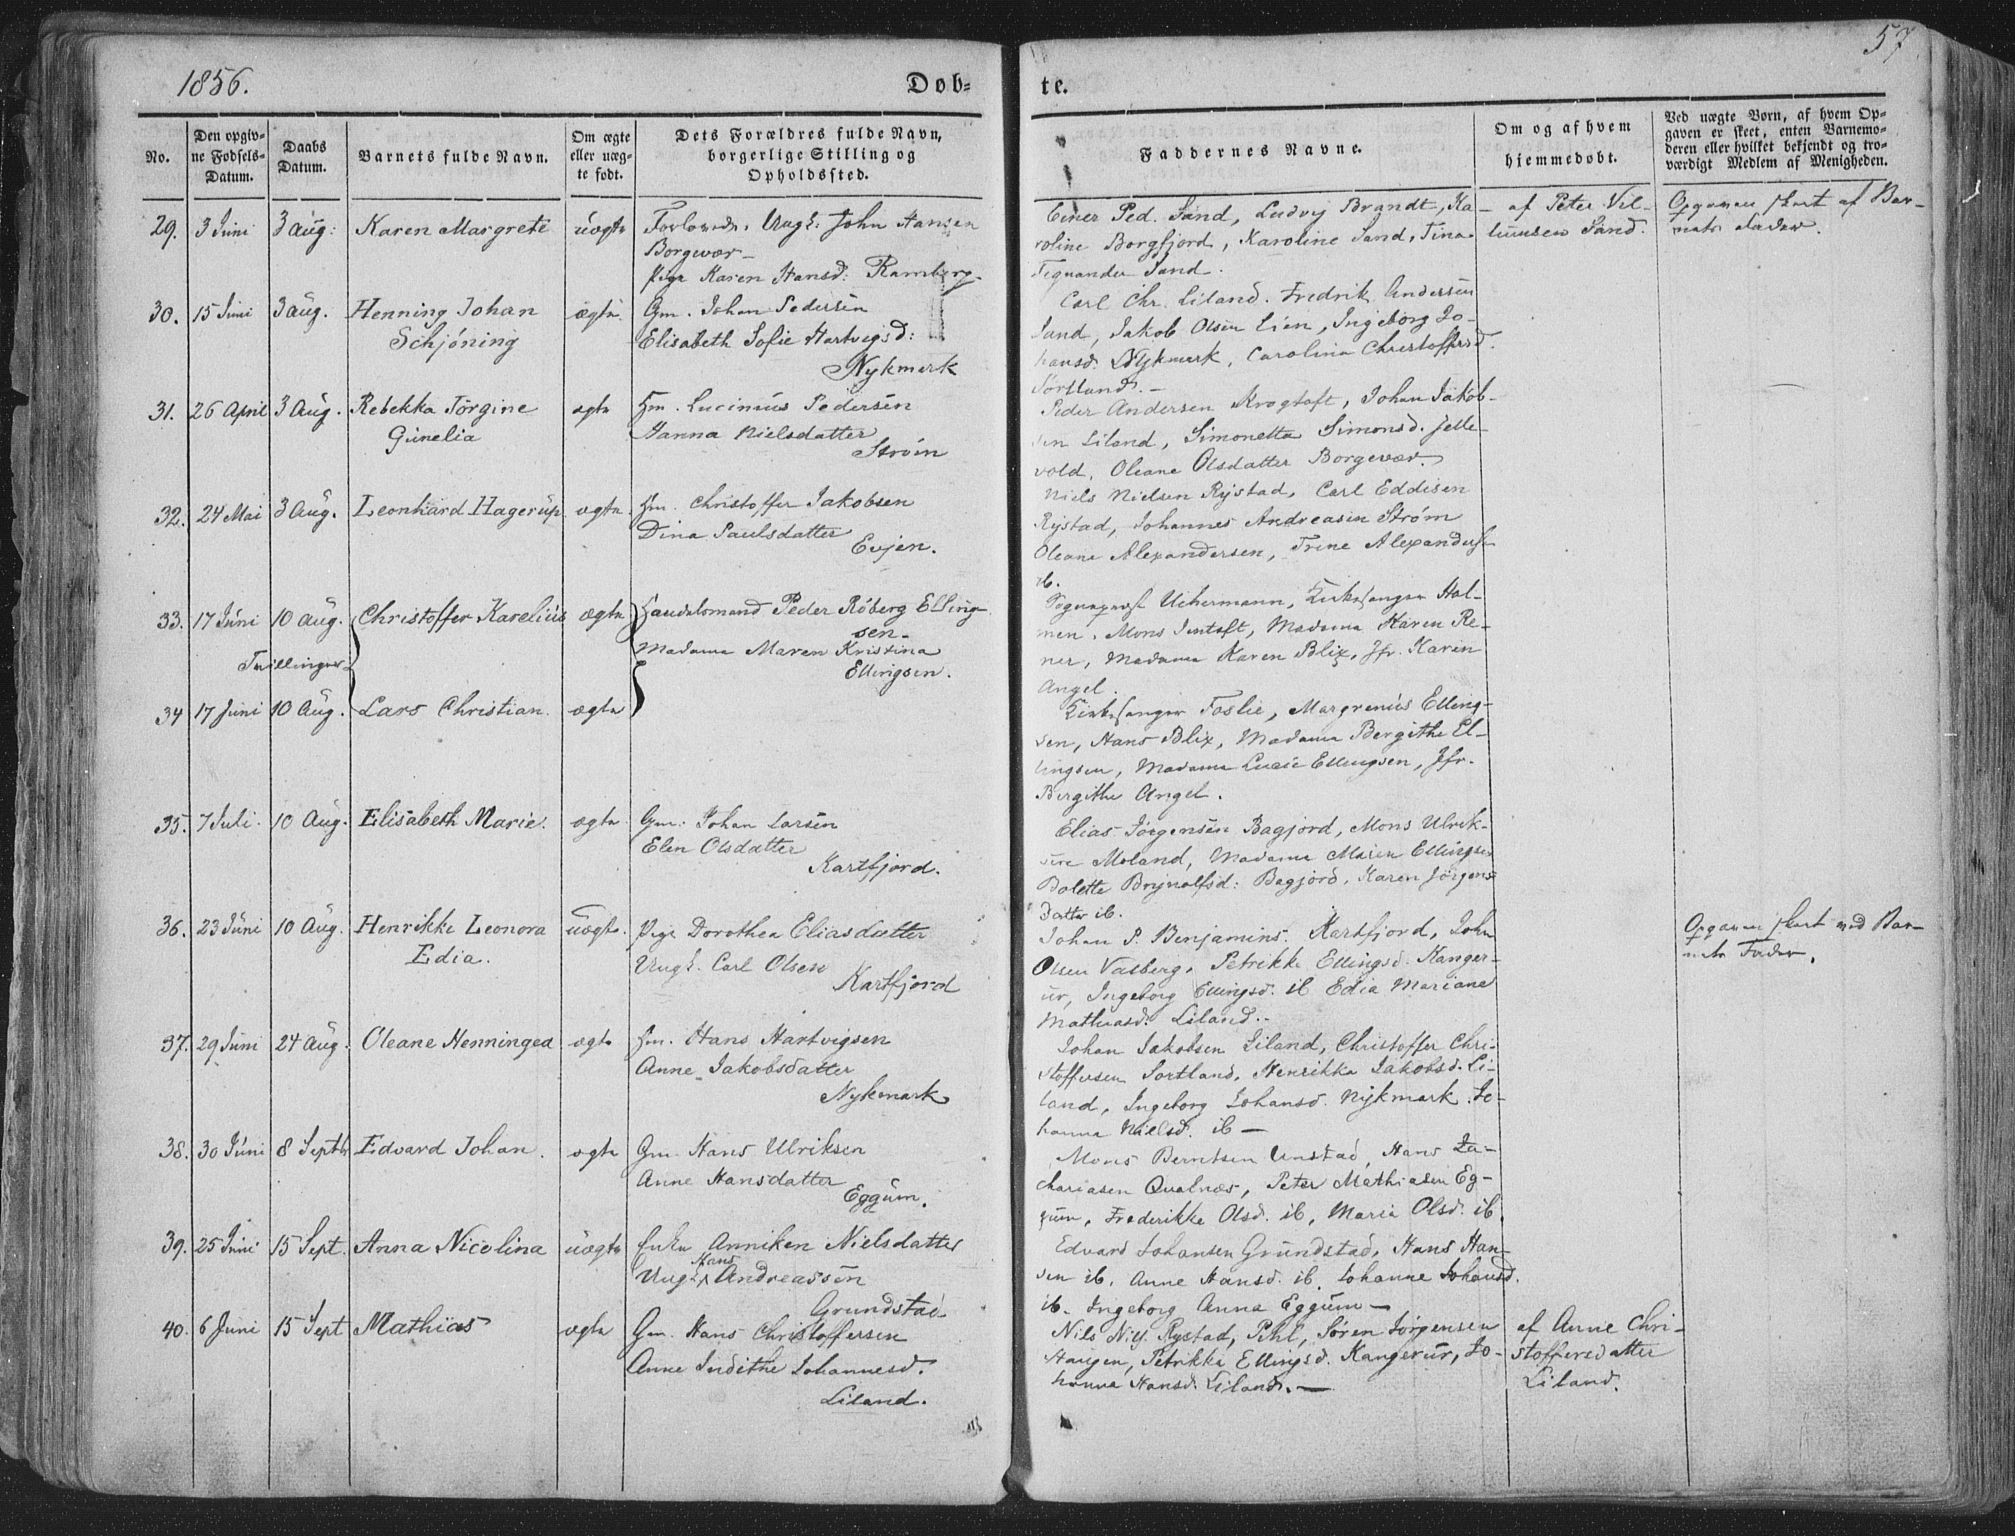 1856.
Døb=
te.
57
No.
Den opgiv=
ne Fødsels=
Datum.
Daabs
Datum.
Barnets fulde Navn.
Om ægte
eller uæg=
te født.
Dets Forældres fulde Navn,
borgerlige Stilling og
Opholdssted.
Faddernes Navne.
Om og af hvem
hjemmedøbt.
Ved uægte Børn, af hvem Op=
gaven er skeet, enten Barnemo=
deren eller hvilket bekjendt og tro=
værdigt Medlem af Menigheden.
29. 3 Juni 3 Aug: Karen Margrete uægte Forlovede, Ungk: John Hansen
Borgevær -
Pige Karen Hansd: Ramberg.
Einer Ped. Sand, Ludvig Brandt, Ka-
roline Borgfjord, Karoline Sand, Tina
Sand.
af Peter Vil-
Sand.
Opgaven skeet af Bar-
nets Fader.
30. 15 Juni 3 Aug. Henning Johan
Schjöning
ægte Gm. Johan Pedersen
Elisabeth Sofie Hartvigsd:
Nykmark
Carl Chr. Liland. Fredrik Andersen
Sand, Jakob Olsen Lien, Ingeborg Jo-
hansd. Nykmark, Carolina Christoffersd.
Sortland. -
31. 26 April 3 Aug. Rebekka Jörgine
Gunelia
ægte Hm. Lucinius Pedersen
Hanna Nielsdatter
Ström
Peder Andersen Krogtoft, Johan Jakob-
sen Liland, Simonetta Simonsd. Jelle-
vold, Oleane Olsdatter Borgevær.
32. 24 Mai 3 Aug. Leonhard Hagerup ægte Hm. Christoffer Jakobsen
Dina Paulsdatter
Evjen.
Niels Nielsen Rystad, Carl Eddisen
Rystad, Johannes Andreasen Ström
Oleana Alexandersen, Trine
ib.
33. 17 Juni 10 Aug. Christoffer Karelius ægte Handelsmand Peder Röberg Elling-
sen -
Tvillinger
Madame Maren Kristina
Ellingsen.
Sogneprest Uchermann, Kirkesanger Hol-
men, Mons Jentoft, Madame Karen Re-
ner, Madame Karen Blix, Jfr. Karen
Angel.
34 17 Juni 10 Aug. Lars Christian ægte
Kirkesanger Foslie, Margrenius Elling-
sen, Hans Blix, Madame Bergithe El-
lingsen, Madame Lucie Ellingsen, Jfr.
Birgithe Angel.
35. 7 Juli 10 Aug. Elisabeth Marie. ægte Gm. Johan Larsen
Elen Olsdatter
Kartfjord.
Elias Jörgensen Bagjord, Mons Ulrik-
sen Moland, Madame Maren Ellingsen
Bolette Brynolfsd: Bagjord, Karen Jörgens
Datter ib.
36. 23 Juni 10 Aug. Henrikke Leonora
Edia.
uægte. Pige Dorothea Eliasdatter
Ungk. Carl Olsen
Kartfjord
Johan P. Benjamins. Kartfjord, John
Olsen Valberg, Petrikke Ellingsd. Kanger-
ur, Ingeborg Ellingsd. ib Edia Mariane
Mathiasd: Liland. -
Opgaven skeet ved Bar-
nets Fader.
37. 29 Juni 24 Aug. Oleane Henningea ægte Hm. Hans Hartvigsen
Anne Jakobsdatter
Nykmark
Johan Jakobsen Liland, Christoffer Chri-
stoffersen Sortland, Henrikka Jakobsd. Li-
land, Ingeborg Johansd. Nykmark, Jo-
hanna Nielsd. ib -
38. 30 Juni 8 Septb Edvard Johan. ægte Gm. Hans Ulriksen
Anne Hansdatter
Eggum.
Mons Berntsen Unstad, Hans Za-
chariasen Qualnæs, Peter Mathiasen Eg-
gum, Frederikke Olsd. ib, Maria Olsd. ib.
39. 25 Juni 15 Sept. Anna Nicolina uægte Enke Anniken Nielsdatter
Hans
Ungk. Andreassen
Grundstad
Edvard Johansen Grundstad, Hans Han-
sen ib, Anne Hansd. ib, Johanne Johansd.
ib. Ingeborg Anna Eggum -
40. 6 Juni 15 Sept Mathias ægte Gm. Hans Christoffersen
Anne Indithe Johannesd.
Liland.
Nils Rystad, Pihl, Sören Jörgensen
Haugen, Petrikka Ellingsd. Kangerur, Jo-
hanna Hansd. Liland. -
af Anne Chri-
stoffersdatter
Liland.